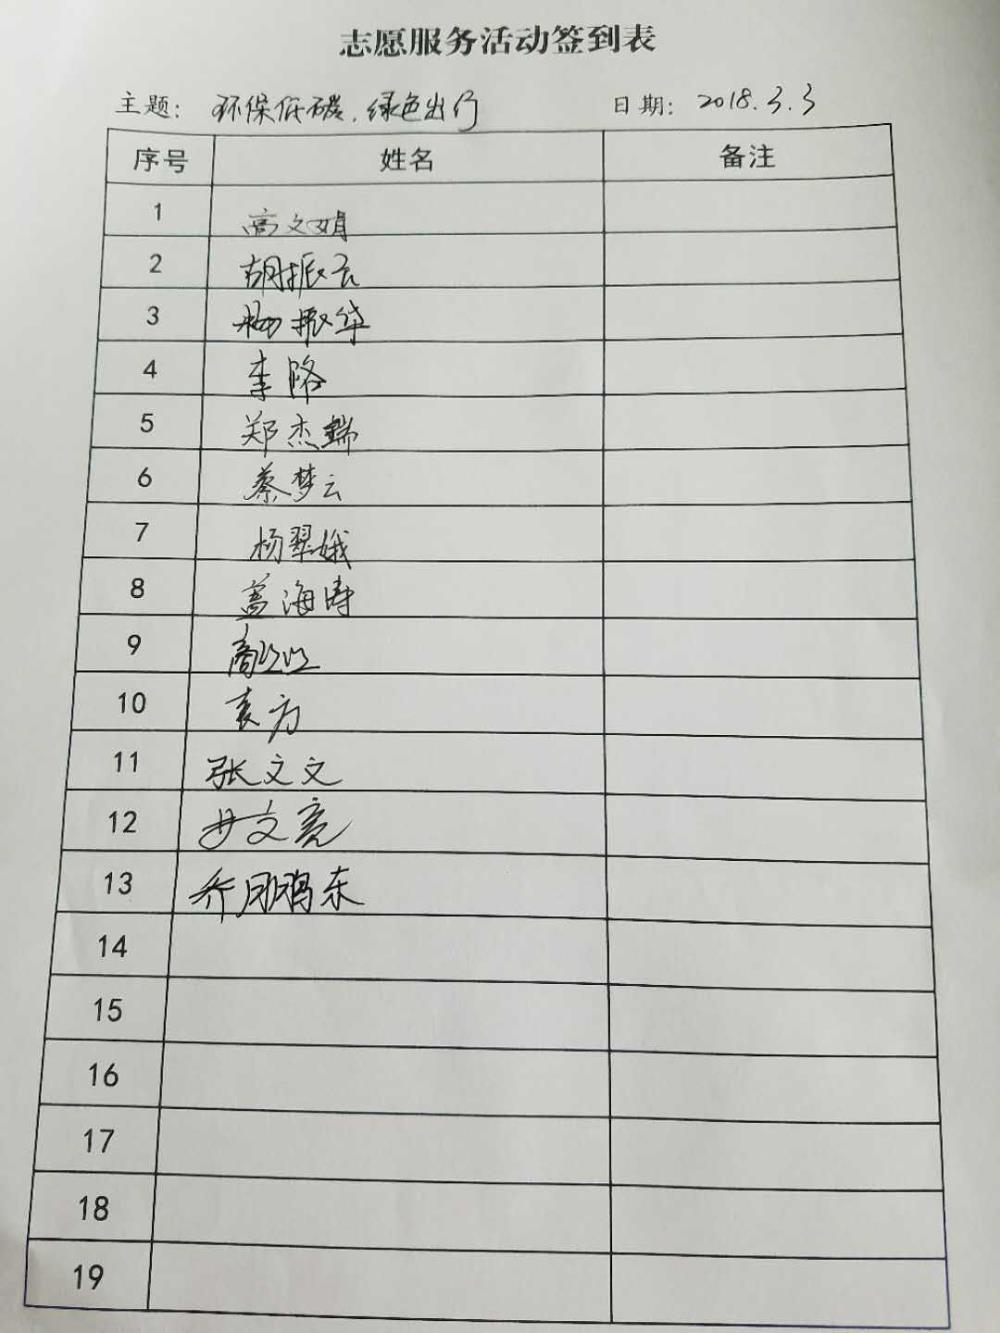 志愿服务活动签到表
主题: 环保低碳,绿色出行 日期: 2018.3.3
序号 姓名 备注
1 高文娟
2 胡振云
3 杨振华
4 李路
5 郑杰瑞
6 蔡梦云
7 杨翠娥
8 盖海涛
9
10 袁方
11 张文文
12 毋文亮
13 乔鹏东
14
15
16
17
18
19